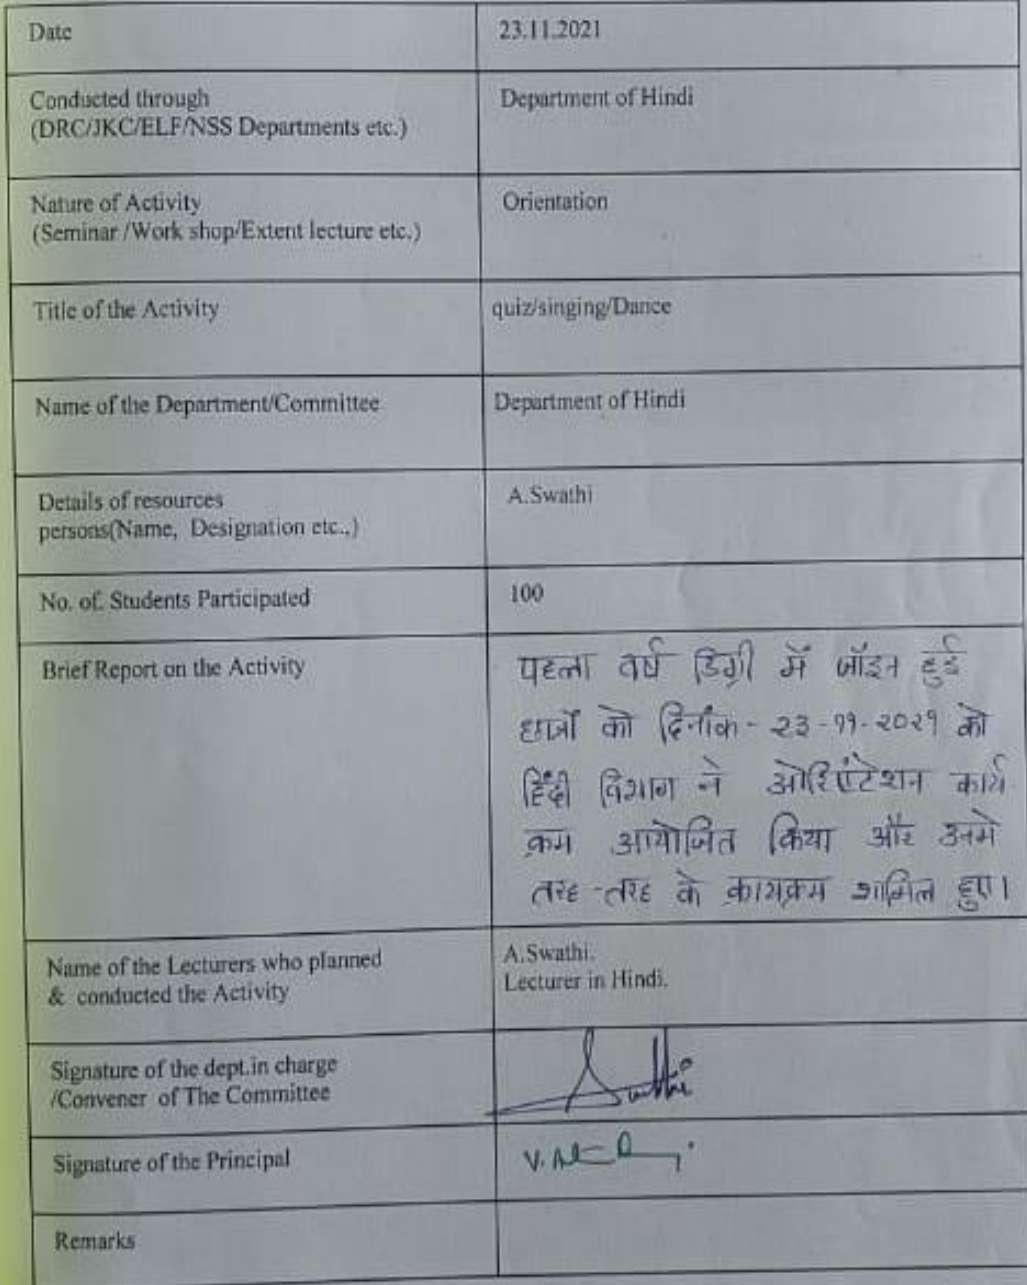 Date 23.11.2021
Conducted through Department of Hindi
(DRC/JKC/ELF/NSS Departments etc.)
Nature of Activity Orientation
(Seminar /Work shop/Extent lecture etc.)
Title of the Activity quiz/singing/Dance
Name of the Department/Committee Department of Hindi
Details of resources A.Swathi
persons(Name, Designation etc.,)
No. of. Students Participated 100
Brief Report on the Activity पहला वर्ष डिग्री में जॉइन हुई
छात्रों को दिनाँक - २३-११-२०२१ को
हिंदी विभाग ने ओरिएंटेशन कार्य
क्रम आयोजित किया और उनमे
तरह-तरह के कार्यक्रम शामिल हुए।
Name of the Lecturers who planned A.Swathi.
& conducted the Activity Lecturer in Hindi.
Signature of the dept.in charge Swathi
/Convener of The Committee
Signature of the Principal
Remarks